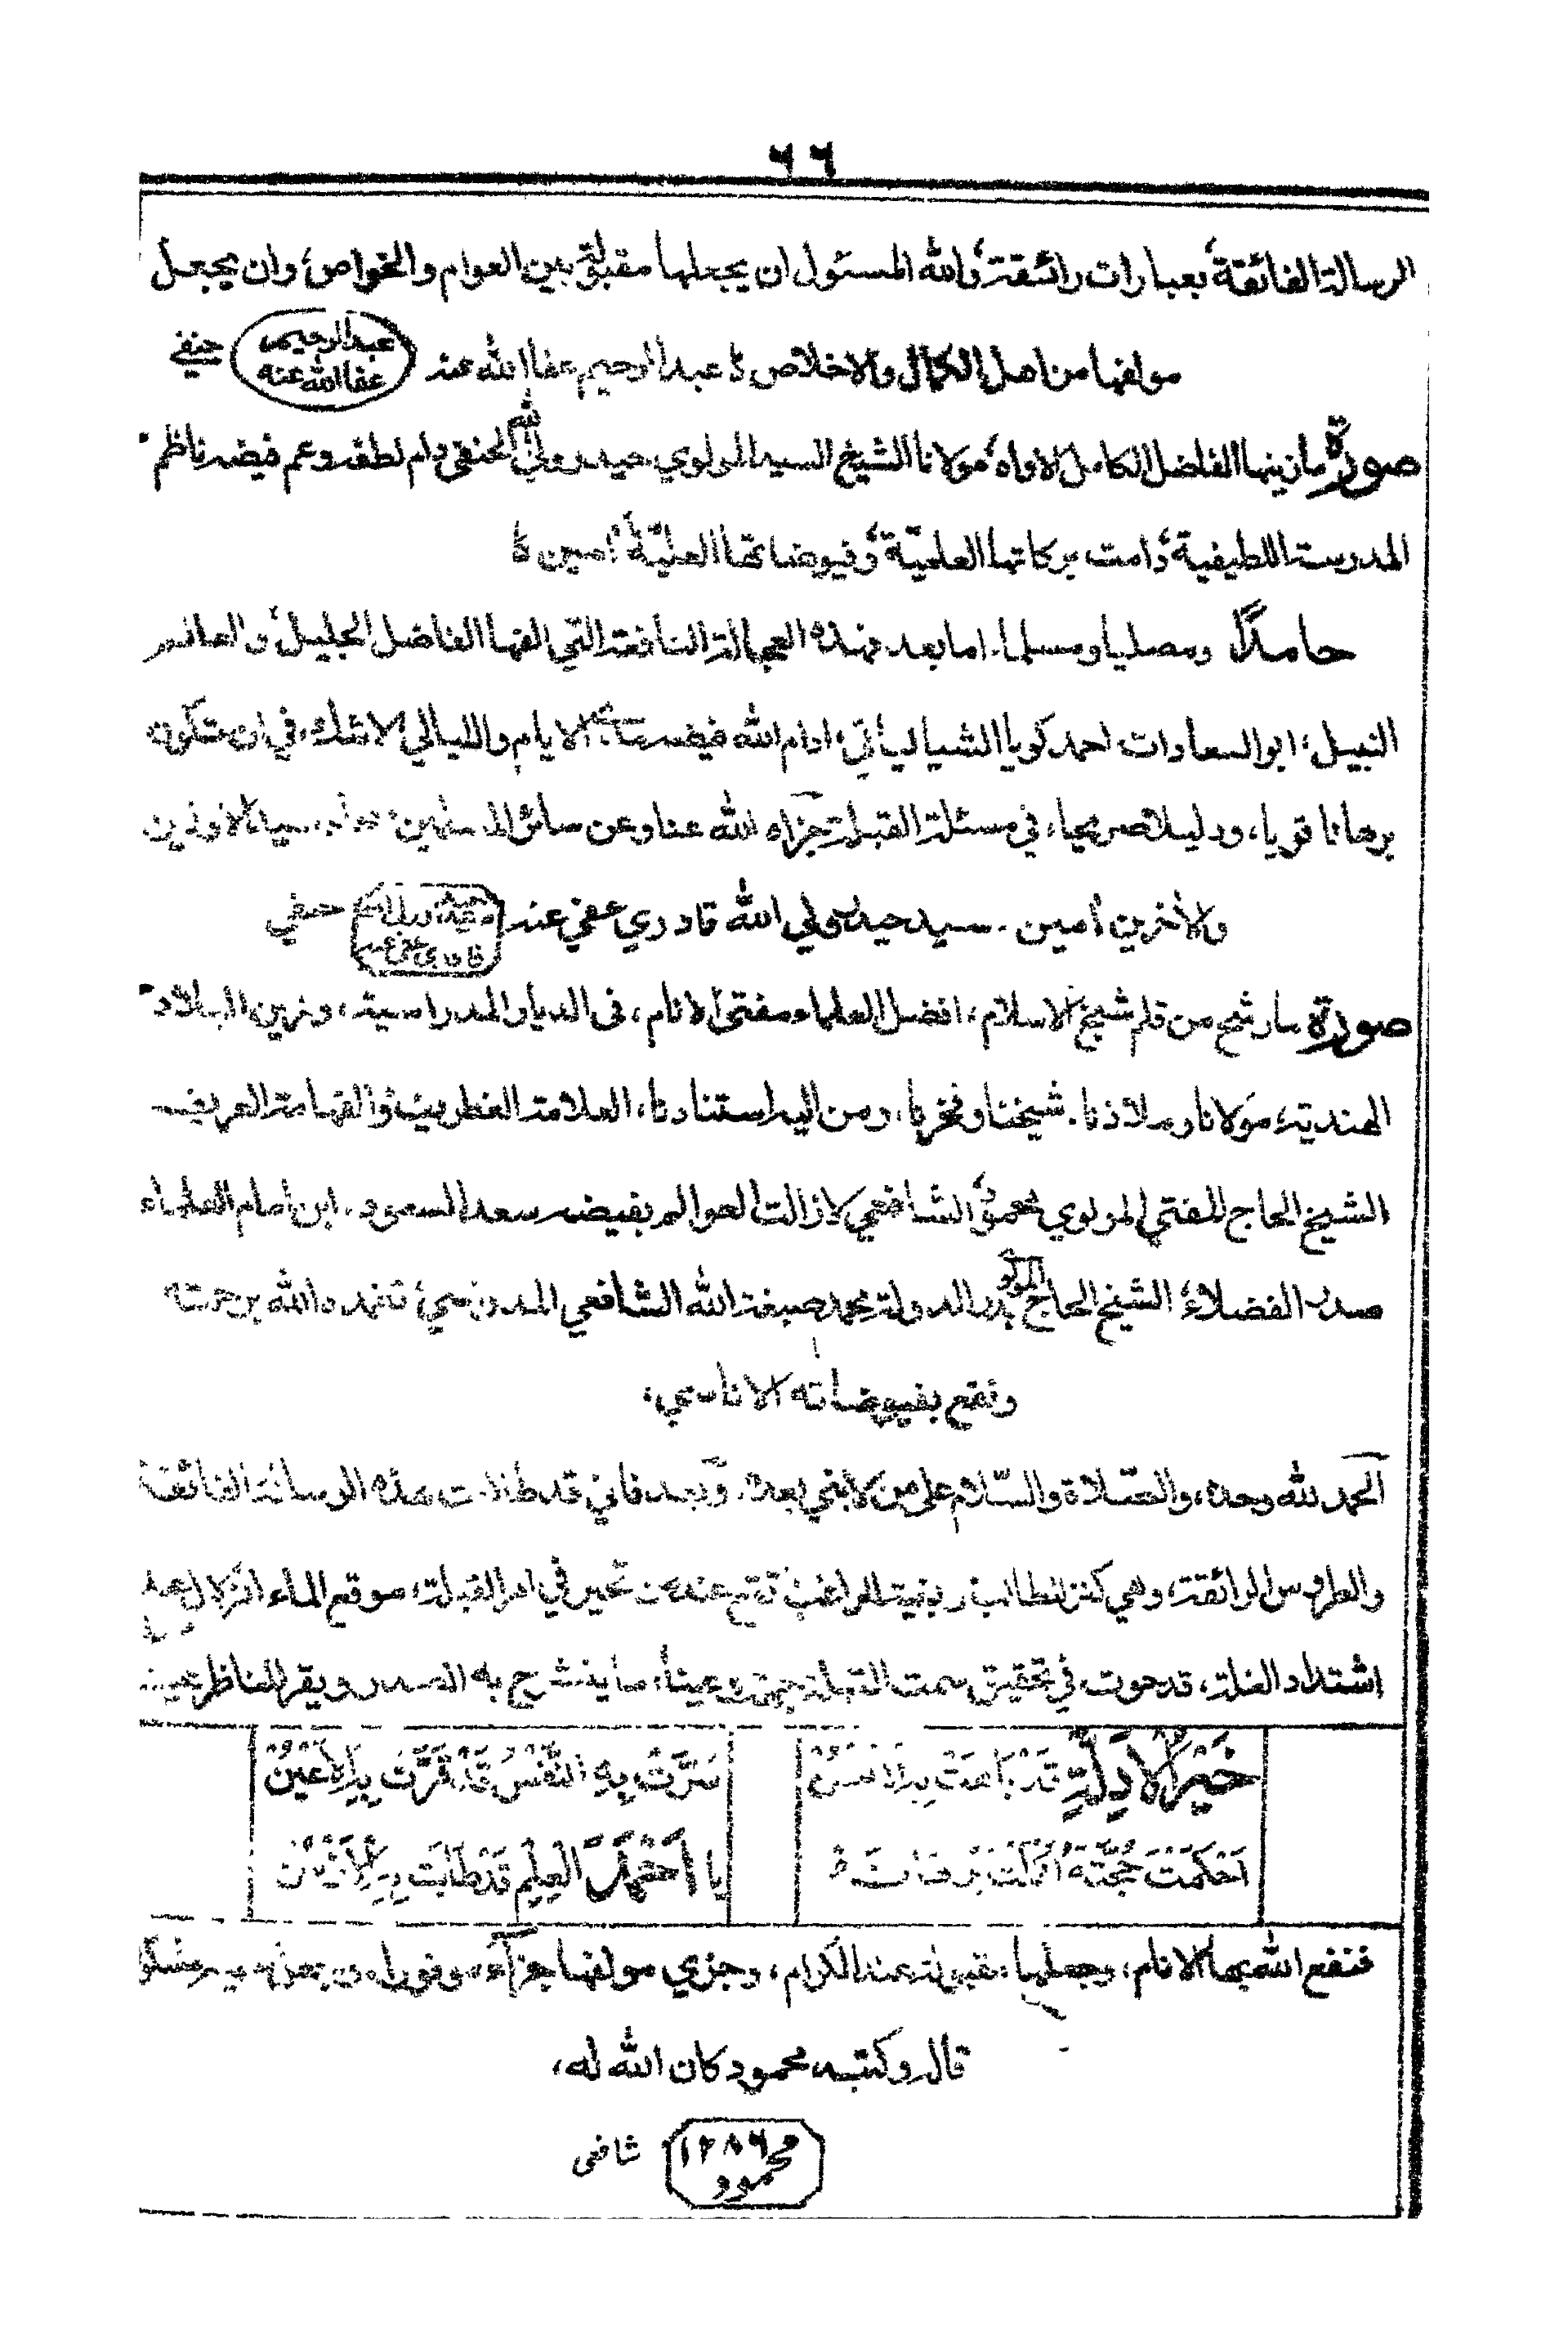 ٦٦
الرسالة الفائقة، بعبارات رائقة، والله المسئول ان يجعلها مقبولة بين العوام والخواص، وان يجعل
مولفها من اهل الكمال والاخلاص، عبد الرحيم عفا الله عنه عبد الرحيم عفا الله عنه حنفي
صورة ما زينها الفاضل الكامل الاواه، مولانا الشيخ السيد المولوي حيدر ولي الله الحنفي دام لطفه وعم فيضه ناظم
المدرسة اللطيفية، دامت بركاتها العلمية، وفيوضاتها العلية، امين
حامدًا ومصليا ومسلما. اما بعد فهذه العجالة النافعة التي الفها الفاضل الجليل، والعالم
النبيل، ابو السعادات احمد كويا الشالياتي، ادام الله فيضه الايام والليالي لا شك، في ان تكون
برهانا قويا، ودليلا صريحا، في مسئلة القبلة جزاه الله عنا وعن سائر المسلمين، سيد الاولين
والأخرين أمين. سيد حيدر ولي الله قادري عفي عنه حنفي
صورة ما رشح من قلم شيخ الاسلام، افضل العلماء مفتي الانام، في الديار المدراسية، وزين البلاد
الهندية، مولانا وملاذنا. شيخنا وفخرنا، ومن اليه استنادنا، العلامة الغطريف، والفهامة العريف
الشيخ الحاج المفتي المولوي محمود الشافعي لا زالت العوالم بفيضه سعد السعود. ابن امام العلماء
صدر الفضلاء، الشيخ الحاج المولوي بدر الدولة محمد صبغة الله الشافعي المدراسي، تغمده الله برحمته
ونفع بفيوضاته الاناسي،
الحمد لله وحده، والصّلاة والسّلام على من لا نبي بعده. وبعد فاني قد طالعت هذه الرسالة الفائقة
والطروس الرائقة، وهي كنز للطالب وبغية للراغب، تقع عند من تحير في امر القبلة، موقع الماء الزلال عند
اشتداد الغلة، قد حوت في تحقيق سمت القبلة جهة وعينا، ما ينشرح به الصدر ويقر للناظر عينا
خَيْرُ الأَدِلَّةِ قَدْ سَرَّتْ بِهِ النَّفْسُ قَدْ قَرَّتْ بِهِ الأَعْيُنُ
اَحْكَمَتْ حُجَّتَهُ يا اَهْلَ العِلْمِ قَدْ طَابَتْ بِهِ
فنفع الله بها الانام، وجعلها مقبولة عند الكرام، وجزي مولفها جزآء موفورا،
قال وكتبه، محمود كان الله له،
١٢٨٦ محمود شافعي